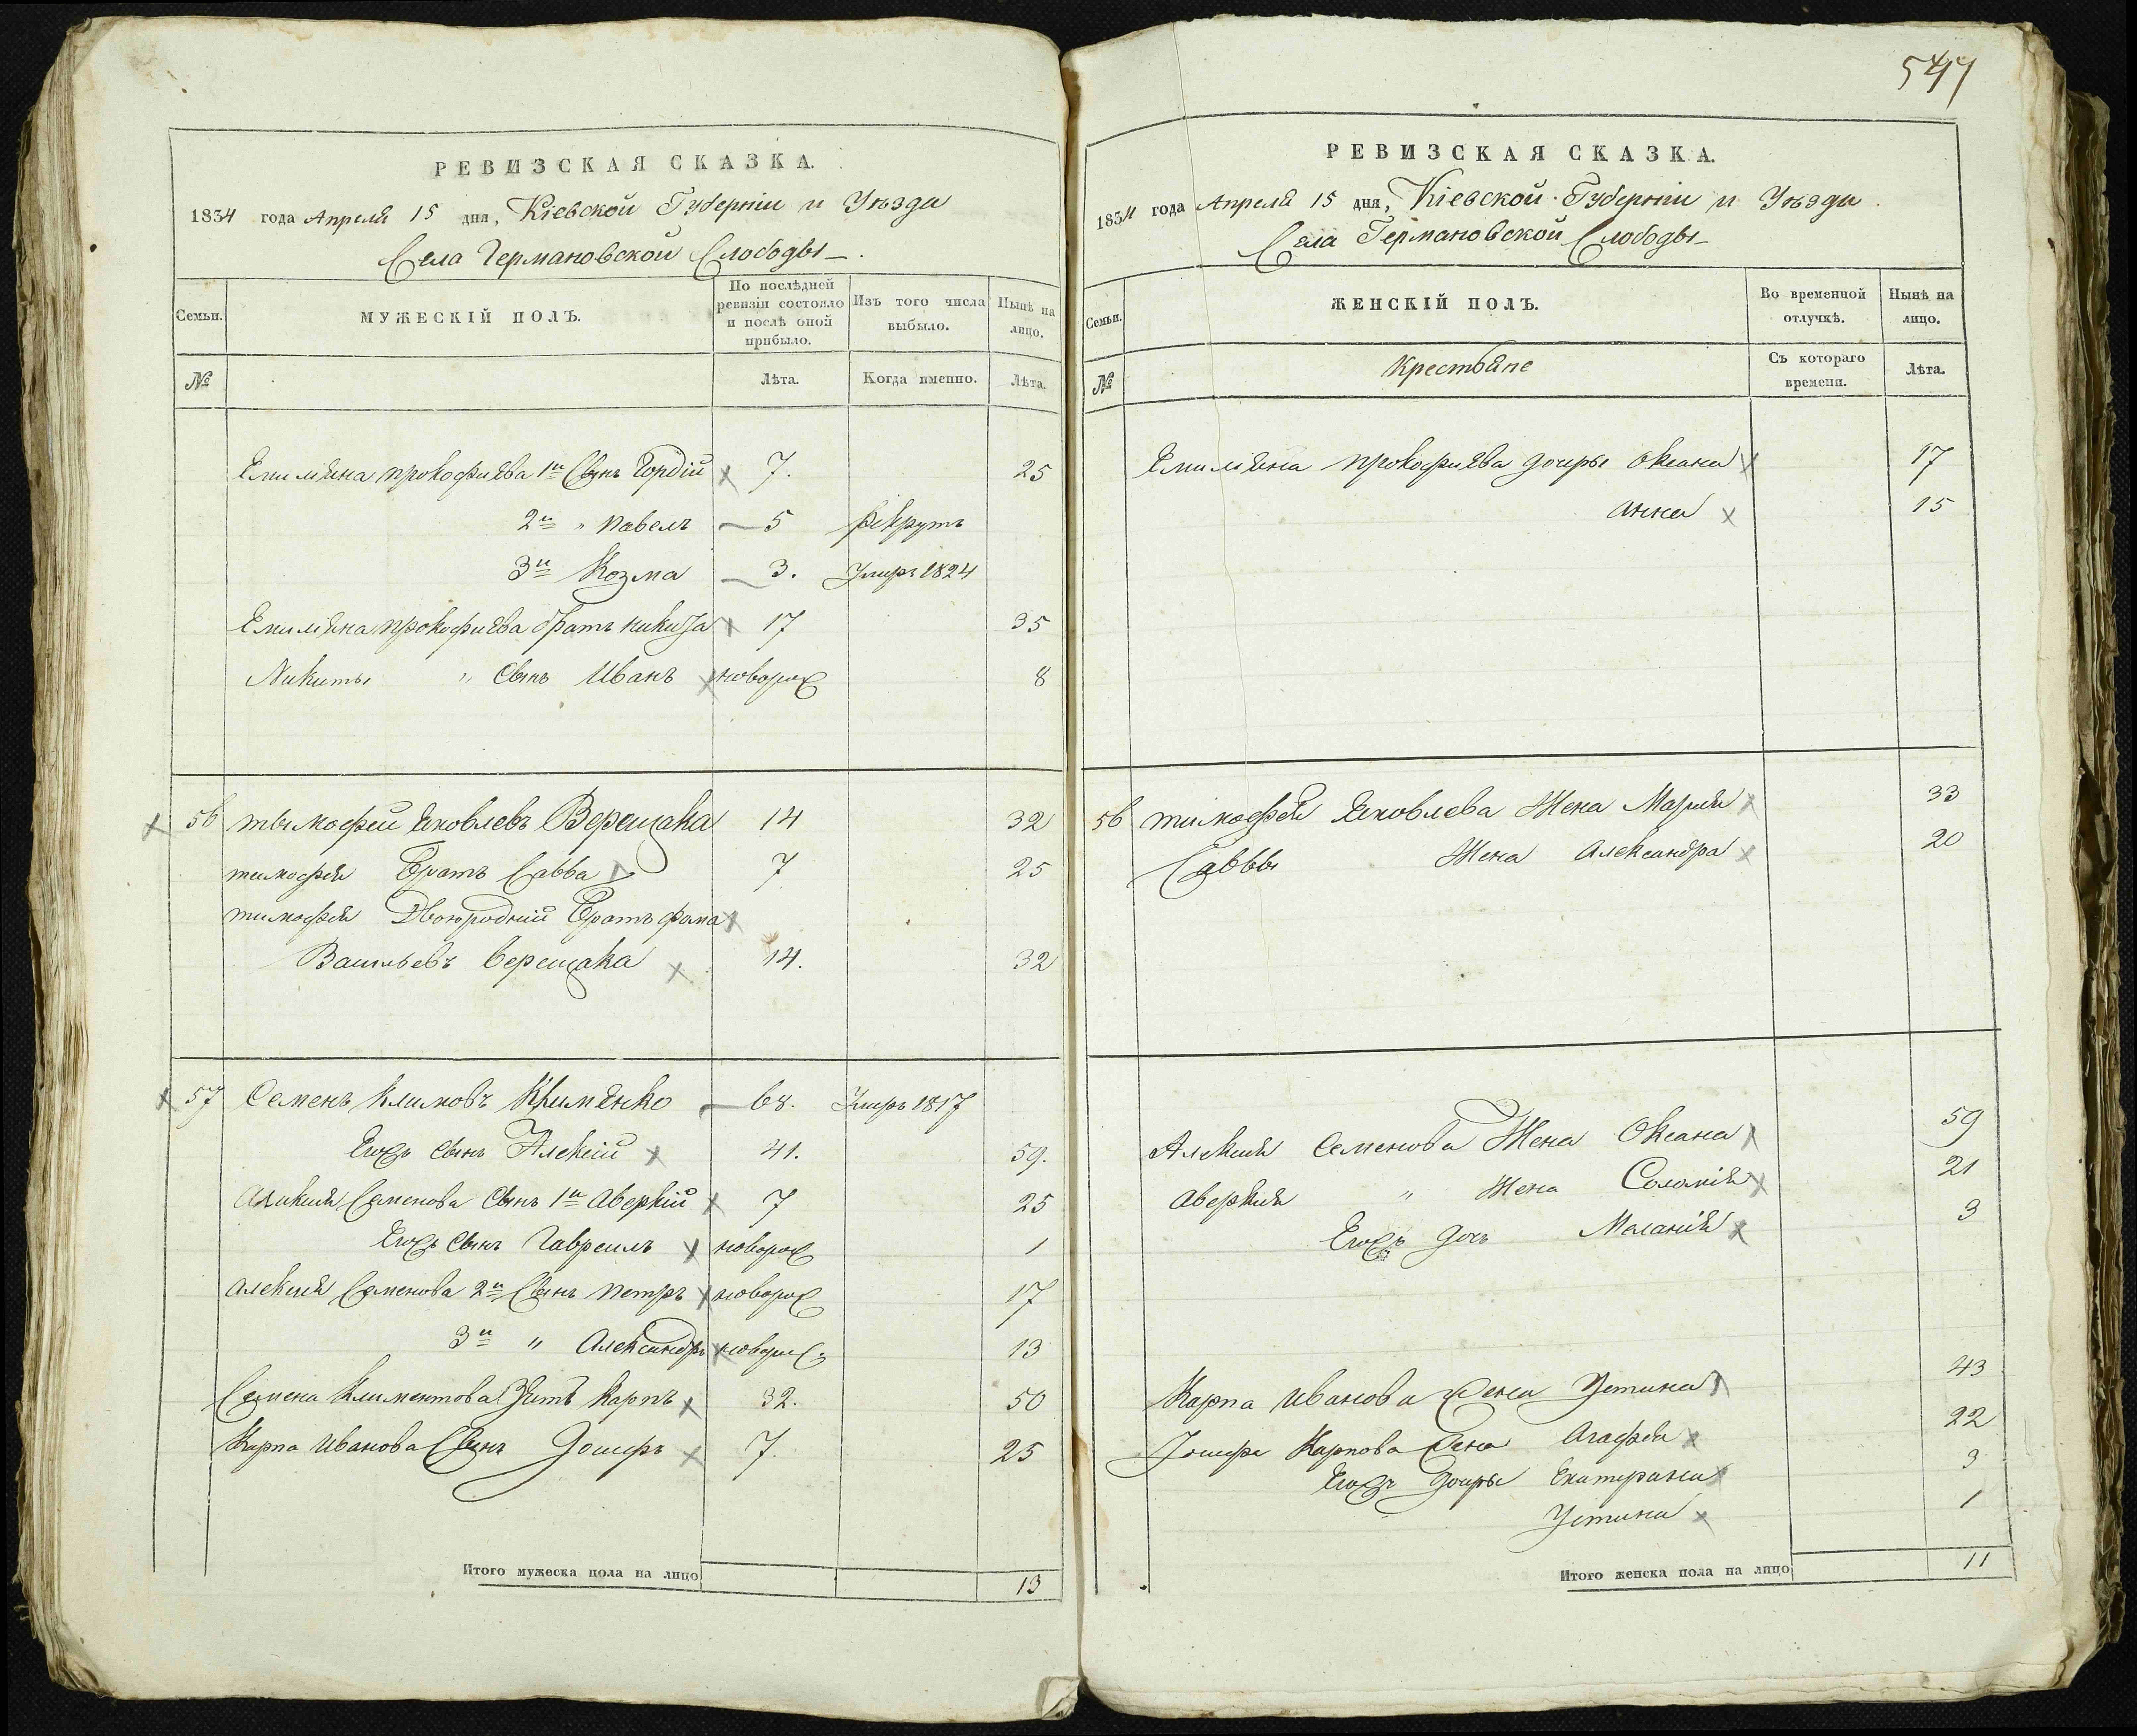 547
РЕВИЗСКАЯ СКАЗКА.
1834 года Апреля 15 дня, Кіевской Губерніи и Уѣзда
Села Германовской Слободы
Семьи.
МУЖЕСКІЙ ПОЛЪ.
По послѣдней
ревизіи состояло
и послѣ оной
прибыло.
Изъ того числа
выбыло.
Нынѣ на
лицо.
№
Лѣта.
Когда именно.
Лѣта.
Емиліяна прокофиева 1й Сынъ Гордій 7. 25
2й " павелъ 5 рекрутъ
3й Козма 3. Умиръ 1824
Емиліяна прокофиева братъ никита 17 35
Никиты " Сынъ Иванъ новорож 8
56 тимофей Яковлевъ Верещака 14 32
тимофея Братъ Савва 7 25
тимофея Двоюродній Братъ фома
Васильевъ Верещака 14. 32
57 Семенъ Климовъ Клименко 68. Умиръ 1817
Егожъ Сынъ Алексій 41. 59.
Алексия Семенова Сынъ 1й Аверкій 7 25
Егожъ Сынъ Гавреилъ новорож 1
Алексия Семенова 2й Сынъ петръ новорож 17
3й " Александръ новорож 13
Семена Климентова Зять Карпъ 32. 50
Карпа Иванова Сынъ Іосифъ 7. 25
Итого мужеска пола на лицо 13
РЕВИЗСКАЯ СКАЗКА.
1834 года Апреля 15 дня, Кіевской Губерніи и Уѣзда
Села Германовской Слободы
Семьи.
ЖЕНСКІЙ ПОЛЪ.
Во временной
отлучкѣ.
Нынѣ на
лицо.
№
Крестьяне
Съ котораго
времени.
Лѣта.
Емиліяна прокофиева дочеры Оксана 17
Анна 15
56 тимофея Яковлева Жена Мария 33
Саввы Жена Александра 20
Алексия Семенова Жена Оксана 59
Аверкия " Жена Соломія 21
Егожъ дочь Меланія 3
Карпа Иванова жена Устина 43
Іосифа Карпова жена Агафия 22
Егожъ дочеры Екатерина 3
Устина 1
Итого женска пола на лицо 11